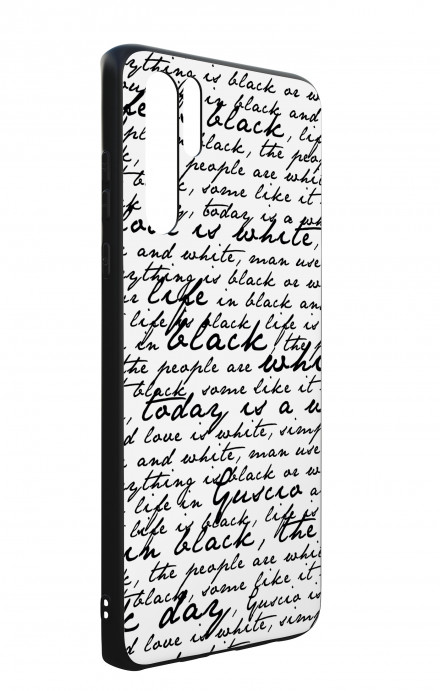 ything is black or w
in black and
life black, life
black, the peop
, people are whit
black, some like it
, today is a wh
love is white,
e and white, man use
ything is black or w
ur life in black an
life is black, life is
in black, the p
the people are whi
t black, some like it
, today is a w
d love is white, simp
e and white, man use
ything is black or w
life in Guscio a
life is black, life is
in black, the
, the people are whit
black, some like it
k day, Guscio is
d love is white, sim